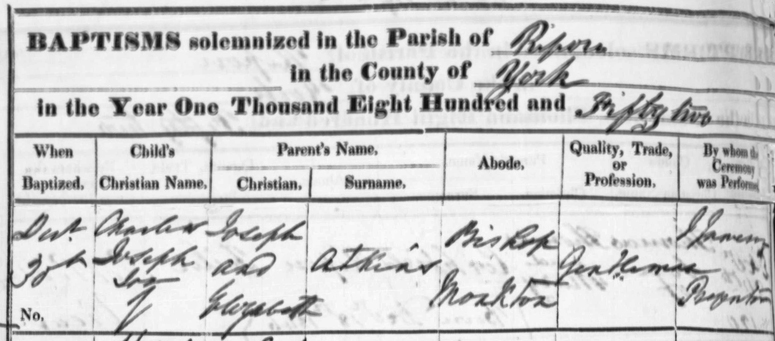 BAPTISMS solemnized in the Parish of Ripon
in the County of York
in the Year One Thousand Eight Hundred and Fifty two
When Baptized. Child's Christian Name. Parent's Name. Abode. Quality, Trade, or Profession. By whom the Ceremony was Performed
Christian. Surname.
Charles Joseph Bishop
Joseph and Atkins Gentleman
Son of Elizabeth Monkton Poynton
No.